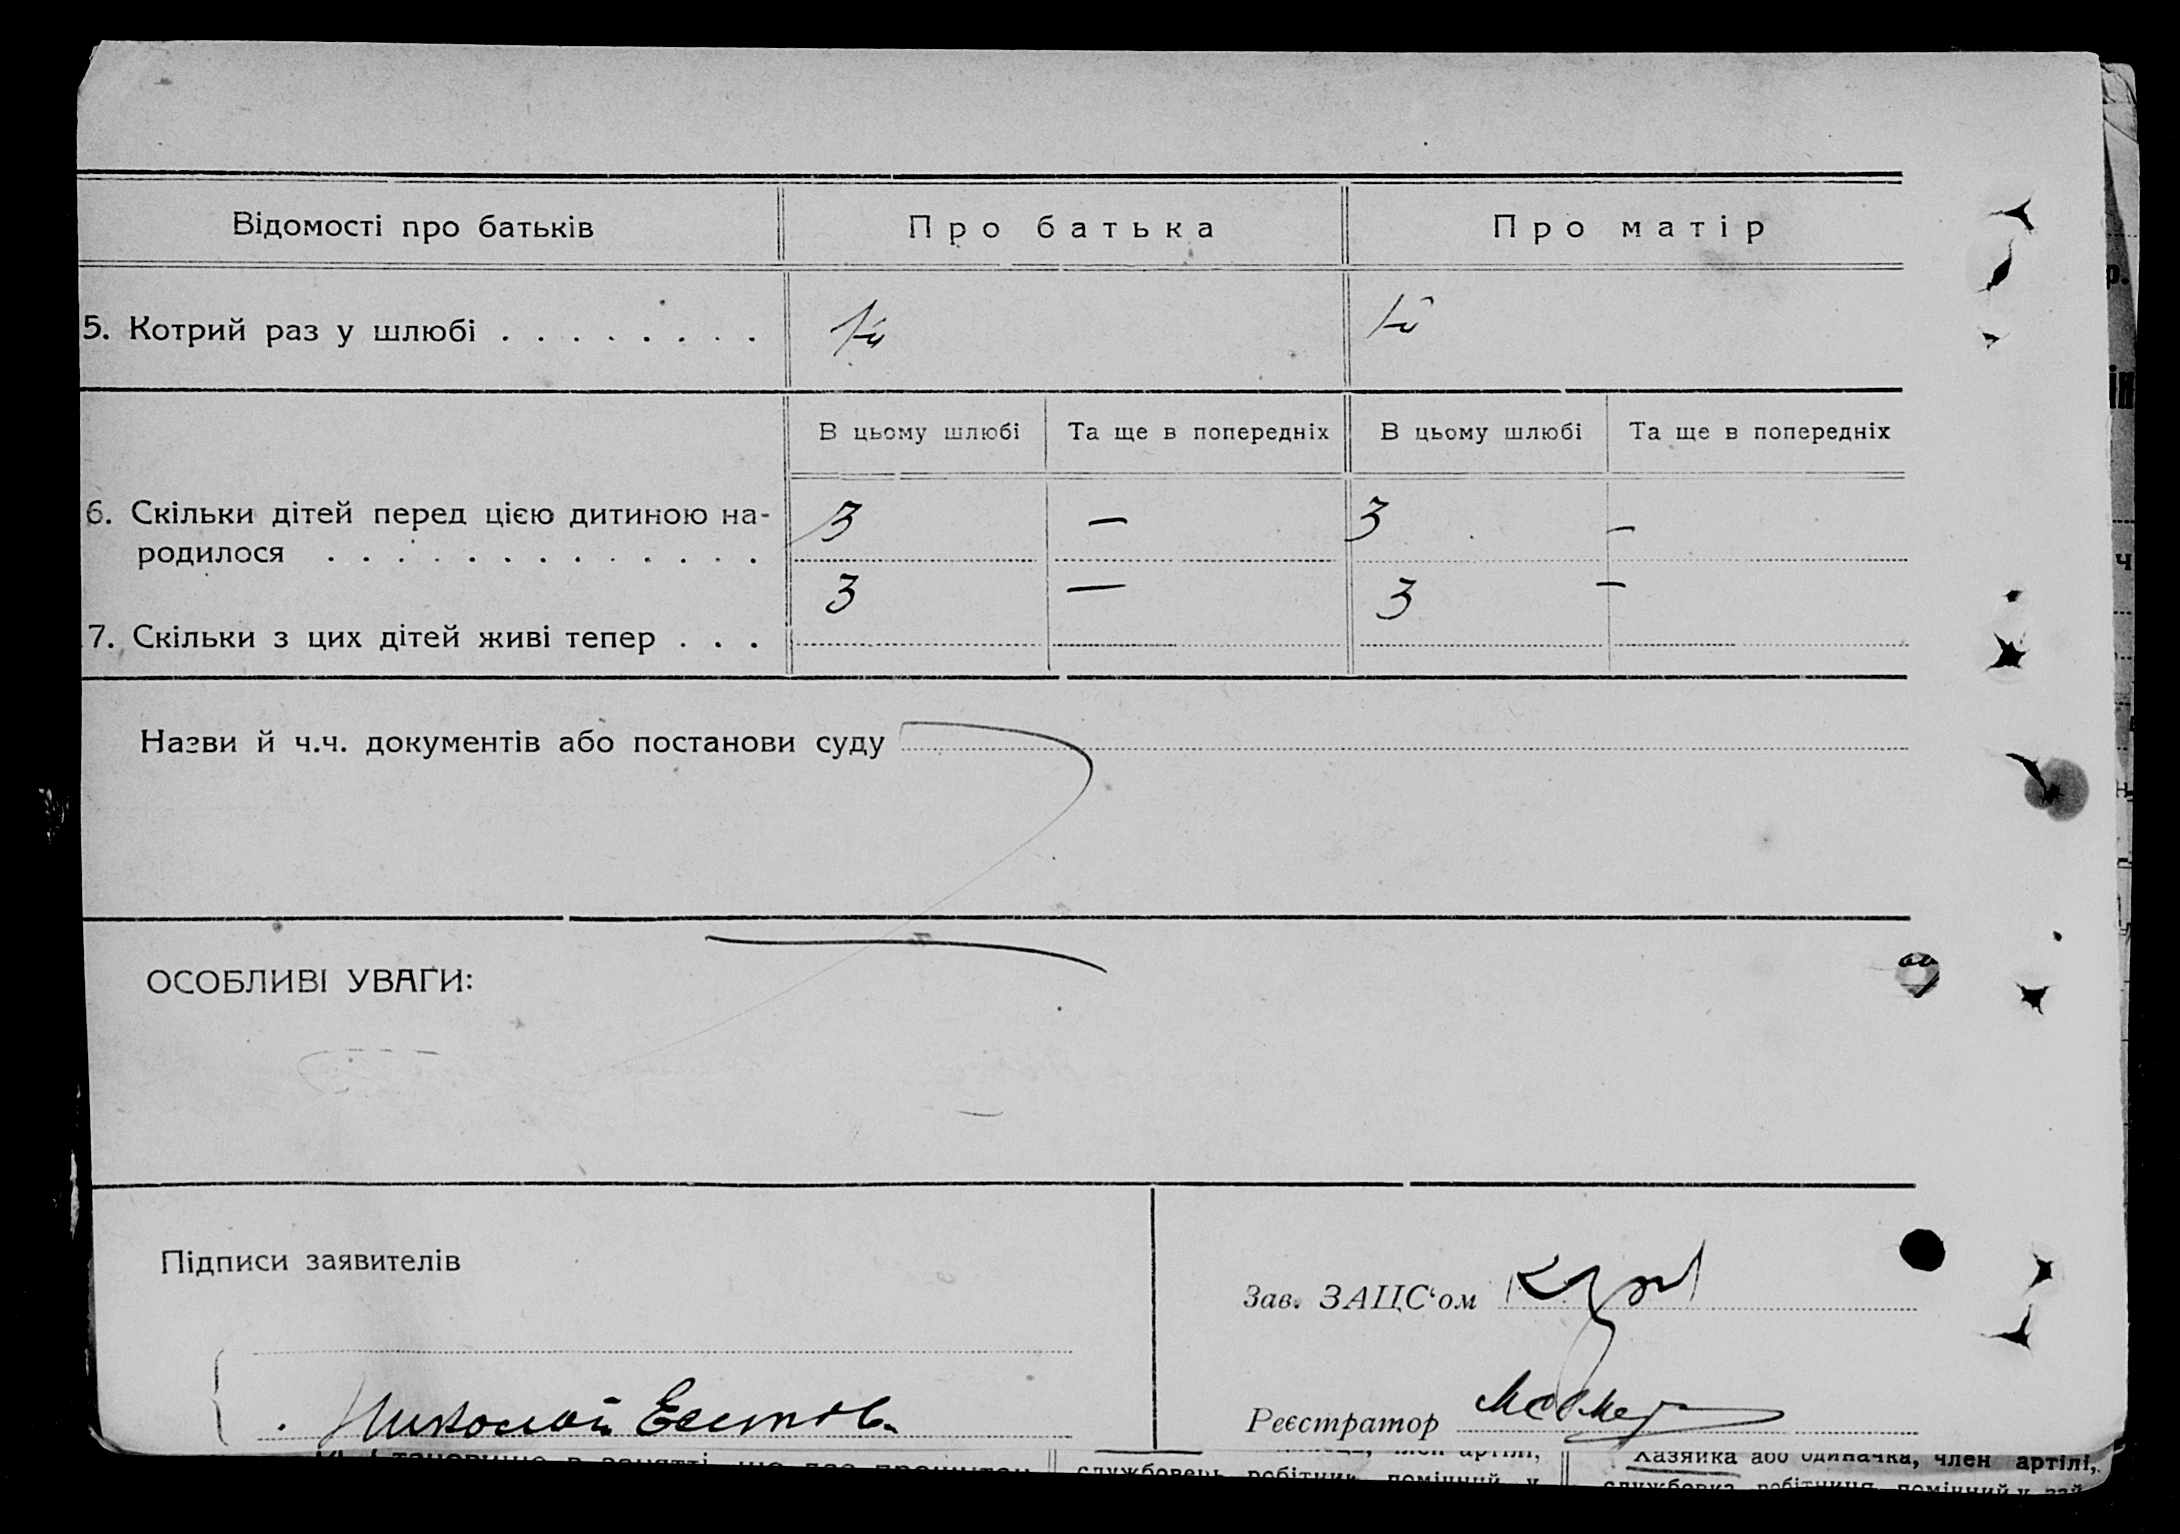 Відомості про батьків Про батька Про матір
5. Котрий раз у шлюбі . . . . . . . .
В цьому шлюбі Та ще в попередніх В цьому шлюбі Та ще в попередніх
6. Скільки дітей перед цією дитиною на-
родилося . . . . . . . . . . . . . 3 — 3 —
7. Скільки з цих дітей живі тепер . . . 3 — 3 —
Назви й ч.ч. документів або постанови суду
ОСОБЛИВІ УВАГИ:
Підписи заявителів
Зав. ЗАЦС‘ом
Николай
Реєстратор
службовець, робітник, помічний у
Хазяйка або одиначка, член артілі,